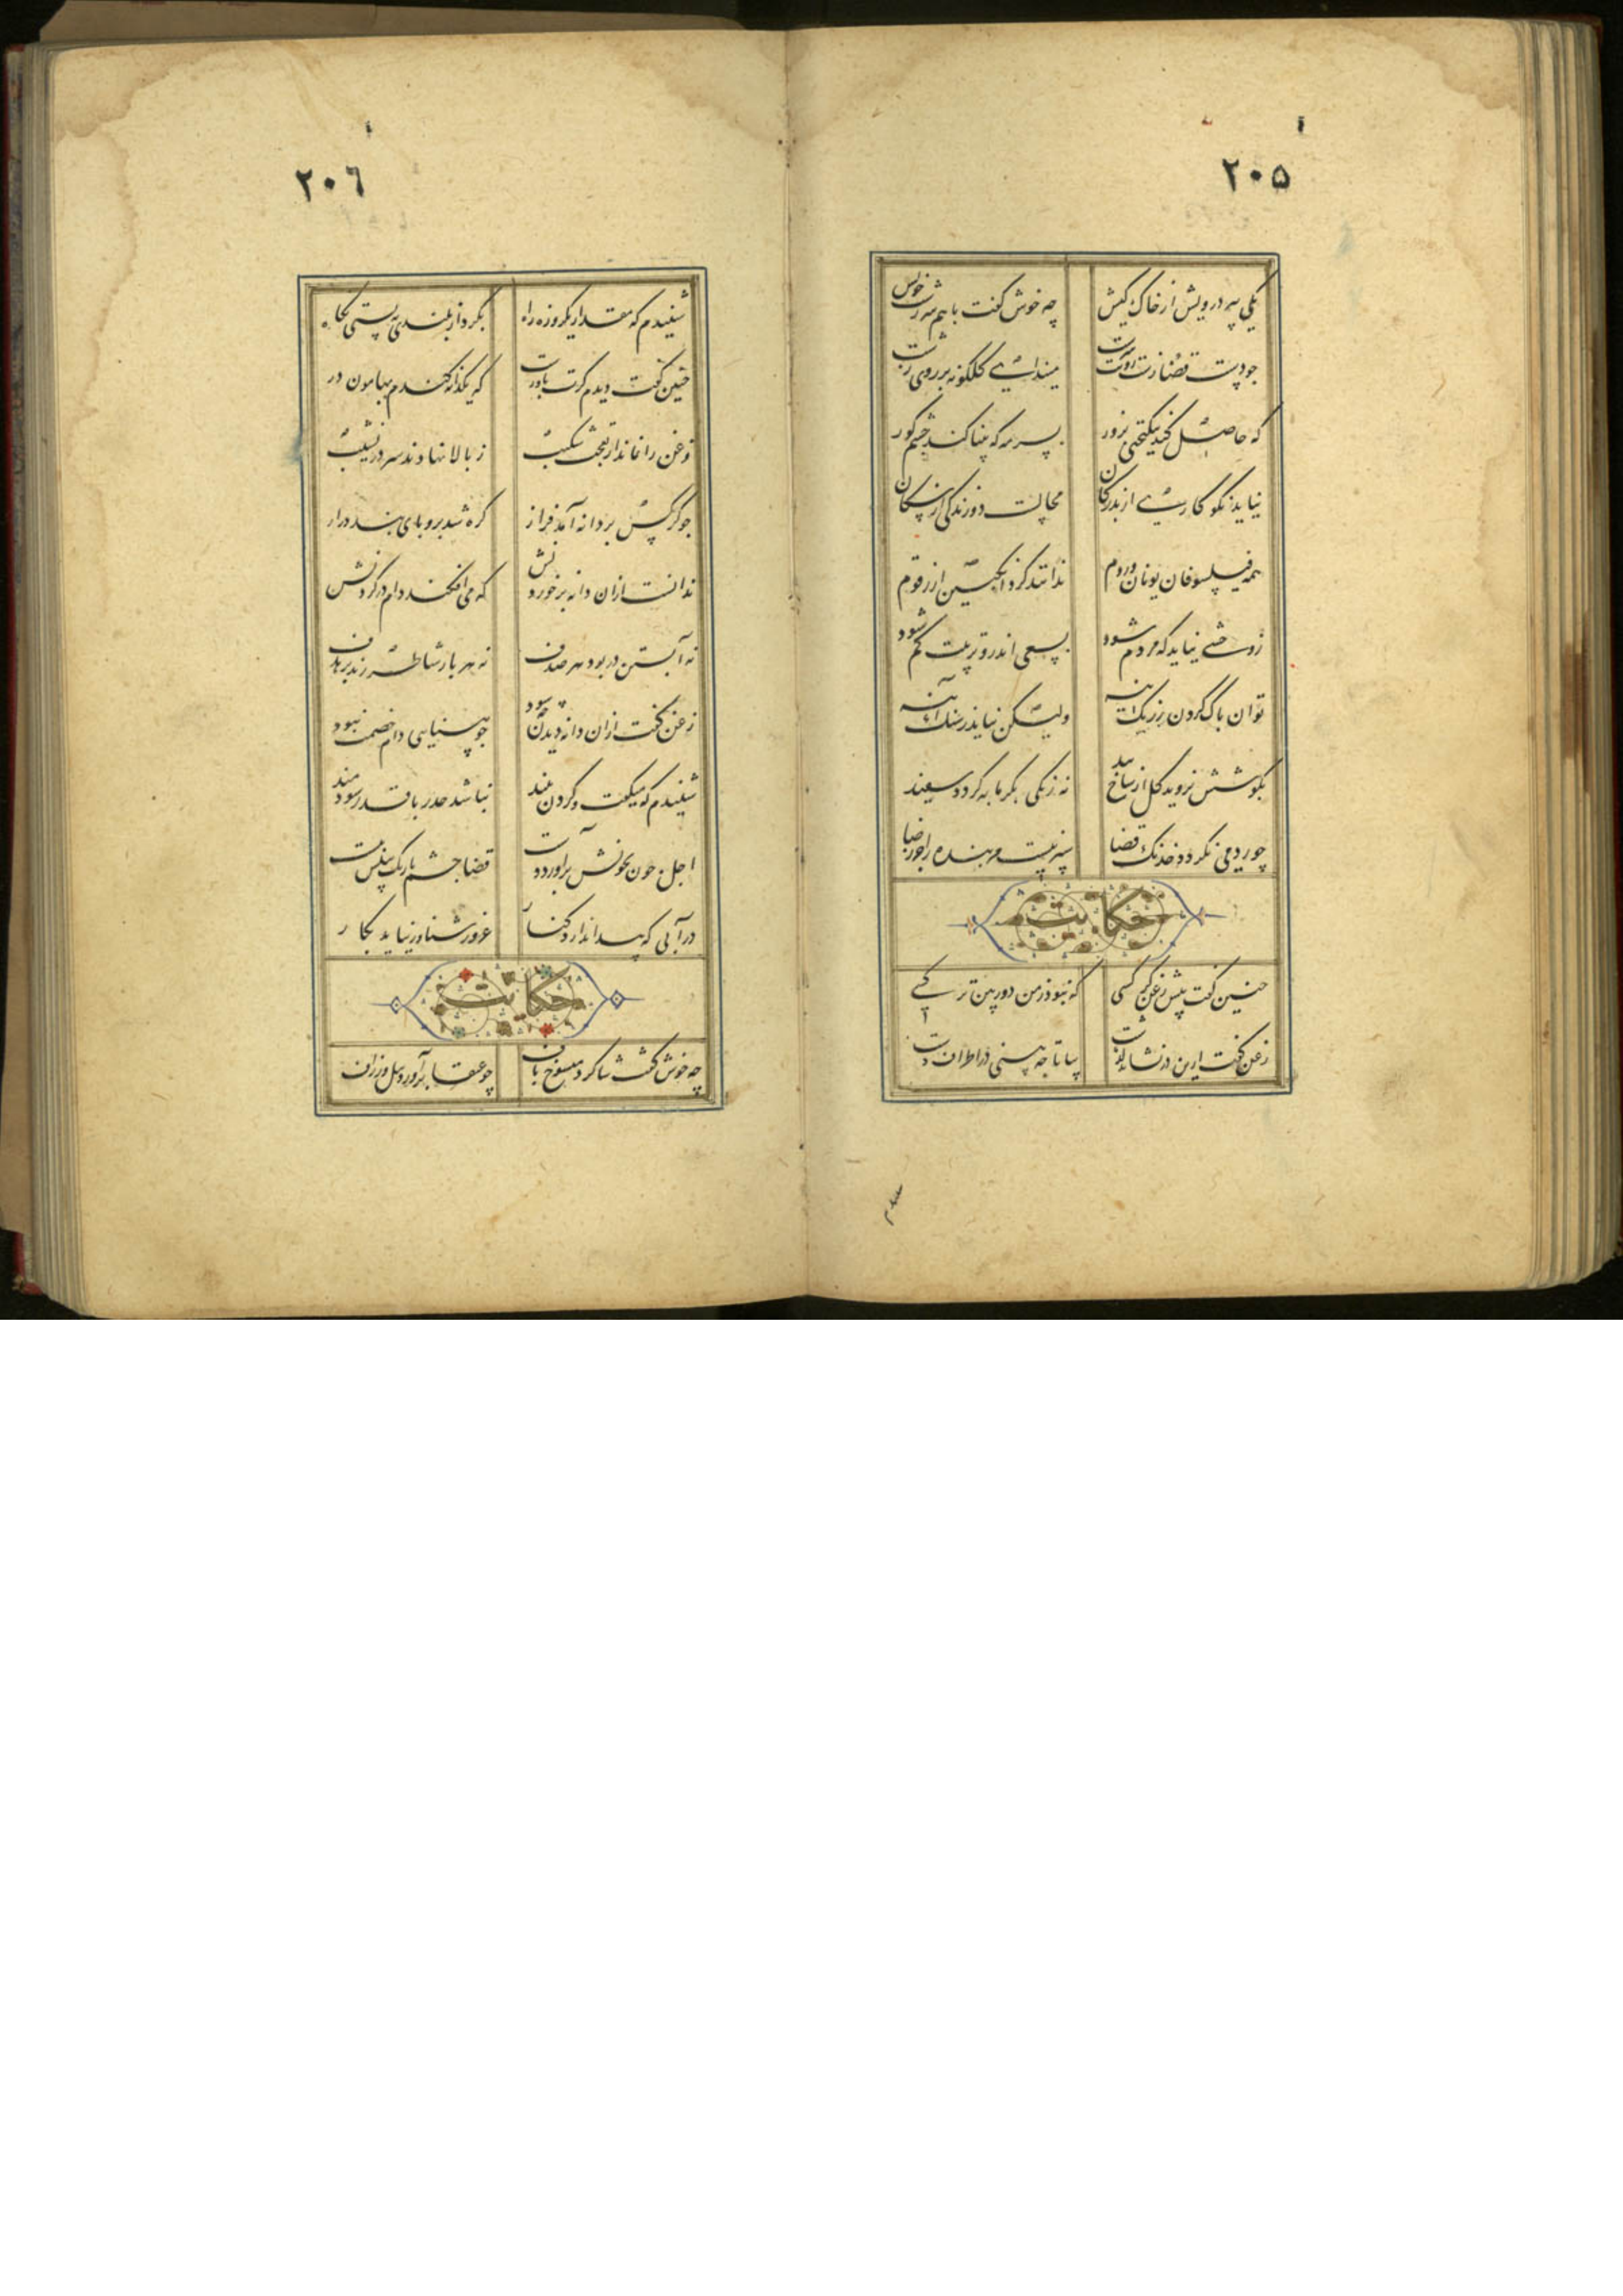 ۲۰۵
یکی پیر درویش از خاک کیش چه خوش گفت با همسر زشت خویش
چو دست قضا زشت رویت سرشت میندای گلگونه بر روی زشت
که حاصل کند نیکبختی بزور بسرمه که بینا کند چشم کور
نیاید نکو کاری از بدرگان محالست دوزندگی از سگان
همه فیلسوفان یونان و روم ندانند کرد انگبین از زقوم
ز وحشی نیاید که مردم شود بسعی اندرو تربیت گم شود
توان پاک کردن ز زنگ آینه ولیکن نیاید ز سنگ آینه
بکوشش نروید گل از شاخ بید نه زنگی بگرمابه گردد سفید
چو رد می نگردد خدنگ قضا سپر نیست مر بنده را جز رضا
حکایت
چنین گفت پیش زغن کرکسی که نبود ز من دوربین تر کسی
زغن گفت ازین در نشاید گذشت بیا تا چه بینی در اطراف دشت
۲۰۶
شنیدم که مقدار یکروزه راه بکرد از بلندی به پستی نگاه
چنین گفت دیدم گرت باورست که یکدانه گندم بهامون درست
زغن را نماند از تعجب شکیب ز بالا نهادند سر در نشیب
چو کرکس بر دانه آمد فراز گره شد برو پای بندی دراز
ندانست از آن دانه بر خوردنش که می افکند دام در گردنش
نه آبستن در بود هر صدف نه هر بار شاطر زند بر هدف
زغن گفت از آن دانه دیدن چه سود چو بینایی دام خصمت نبود
شنیدم که میگفت و گردن ببند نباشد حذر با قدر سودمند
اجل چون بخونش برآورد دست قضا چشم باریک بینش ببست
در آبی که پیدا ندارد کنار غرور شناور نیاید بکار
حکایت
چه خوش گفت شاگرد منسوج باف چو عنقا برآورد و پیل و زراف